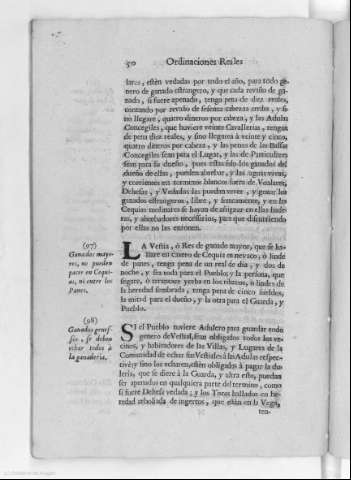 50 Ordinaciones Reales
lares, estèn vedadas por todo el año, para todo ge-
nero de ganado estrangero, y que cada revaño de ga-
nado, si fuere apenado, tenga pena de diez reales,
contando por revaño de sesenta cabezas arriba, y si
no llegare, quatro dineros por cabeza, y las Adulas
Concegiles, que huviere veinte Cavallerias, tengan
de pena diez reales, y sino llegaren à veinte y cinco,
quatro dineros por cabeza, y las penas de las Balsas
Concegiles sean para el Lugar, y las de Particulares
sean para su dueño, pues estando los ganados del
dueño de ellas, pueden abrebar, y las aguas vivas,
y corrientes en terminos blancos fuera de Vedados,
Dehesas, y Vedadas las puedan vever, y gozar los
ganados estrangeros, libre, y francamente, y en las
Cequias molinares se hayan de assignar en ellas
y abrebadores necessarios, para que disfrutiendo
por ellas no las enronen.
(97)
Ganados mayo-
res, no pueden
pacer en Cequi-
as, ni entre los
Panes.
LA Vestia, ò Res de ganado mayor, que se ha-
llare en Caxero de Cequia en nevazo, ò linde
de panes, tenga pena de un real de dia, y dos de
noche, y sea toda para el Pueblo; y la persona, que
segare, ò arranque yerba en los ribazos, ò lindes de
la heredad sembrada, tenga pena de cinco sueldos,
la mitad para el dueño, y la otra para el Guarda, y
Pueblo.
(98)
Ganados grues-
sos, se deben
echar todos à
la ganaderia.
SI el Pueblo tuviere Adulero para guardar todo
genero de Vestias, sean obligados todos los ve-
cinos, y habitadores de las Villas, y Lugares de la
Comunidad de echar sus Vestias à las Adulas respec-
tivè; y sino los echaren, estèn obligados à pagar la du-
leria, que se diere à la Guarda, y altra esto, puedan
ser apenados en qualquiera parte del termino, como
si fuere Dehesa vedada; y los Toros hallados en he-
redad arbolada de ingertos, que estàn en la Vega,
ten-